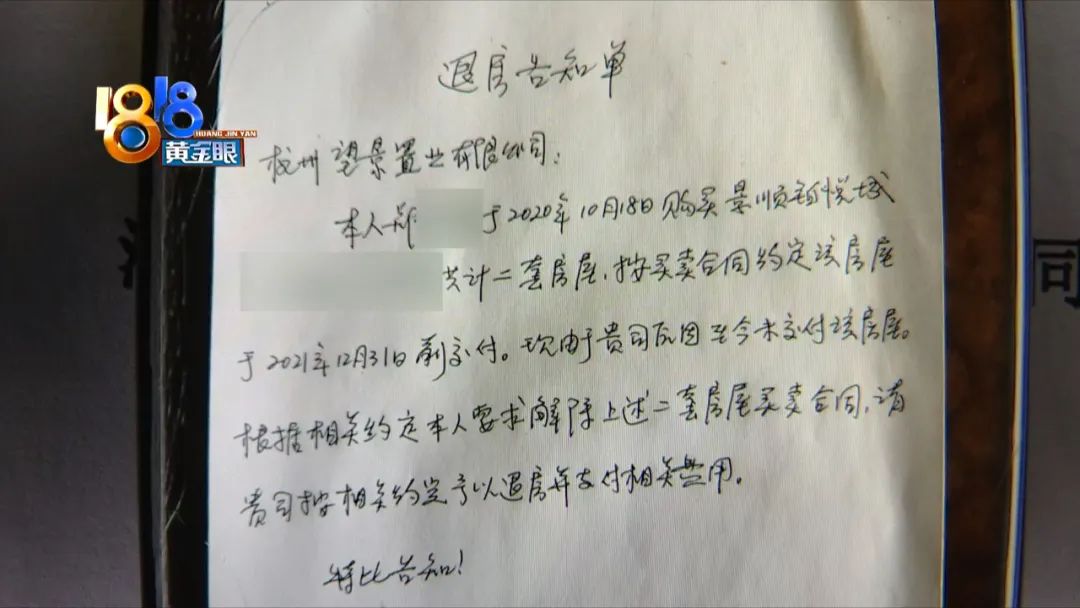 1818
HUANG JIN YAN
黄金眼
退房告知单
杭州望景置业有限公司:
本人郑 于2020年10月18日购买景顺铂悦城
共计二套房屋,按买卖合同约定该房屋
于2021年12月31日前交付。现由于贵司原因至今未交付该房屋。
根据相关约定本人要求解除上述二套房屋买卖合同,请
贵司按相关约定予以退房并支付相关费用。
特此告知!
司